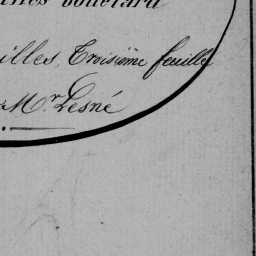 boulevard
illes, Troisième feuille
Mr Lesné